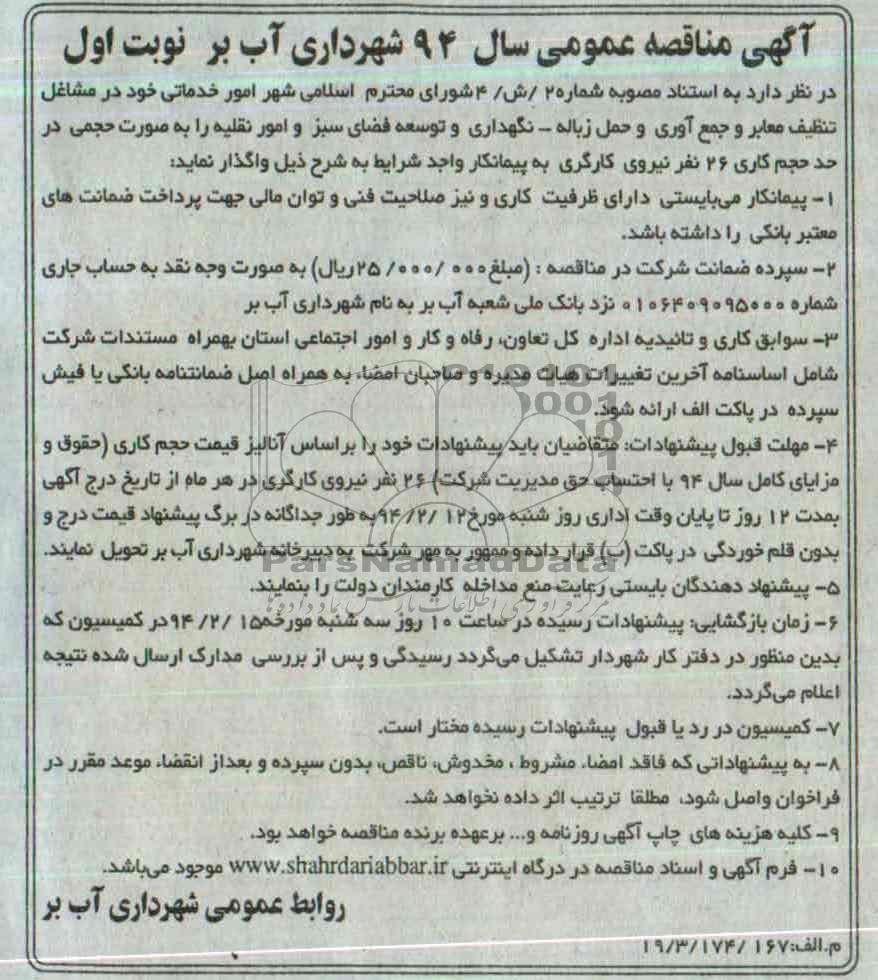 آگهی مناقصه عمومی سال ۹۴ شهرداری آب بر نوبت اول
در نظر دارد به استناد مصوبه شماره۲ /ش/ ۴شورای محترم اسلامی شهر امور خدماتی خود در مشاغل
تنظیف معابر و جمع آوری و حمل زباله – نگهداری و توسعه فضای سبز و امور نقلیه را به صورت حجمی در
حد حجم کاری ۲۶ نفر نیروی کارگری به پیمانکار واجد شرایط به شرح ذیل واگذار نماید:
۱– پیمانکار می‌بایستی دارای ظرفیت کاری و نیز صلاحیت فنی و توان مالی جهت پرداخت ضمانت های
معتبر بانکی را داشته باشد.
۲– سپرده ضمانت شرکت در مناقصه : (مبلغ۰۰۰ /۰۰۰/ ۲۵ریال) به صورت وجه نقد به حساب جاری
شماره ۰۱۰۶۴۰۹۰۹۵۰۰۰ نزد بانک ملی شعبه آب بر به نام شهرداری آب بر
۳– سوابق کاری و تائیدیه اداره کل تعاون، رفاه و کار و امور اجتماعی استان بهمراه مستندات شرکت
شامل اساسنامه آخرین تغییرات هیات مدیره و صاحبان امضاء به همراه اصل ضمانتنامه بانکی یا فیش
سپرده در پاکت الف ارائه شود.
۴– مهلت قبول پیشنهادات: متقاضیان باید پیشنهادات خود را براساس آنالیز قیمت حجم کاری (حقوق و
مزایای کامل سال ۹۴ با احتساب حق مدیریت شرکت) ۲۶ نفر نیروی کارگری در هر ماه از تاریخ درج آگهی
بمدت ۱۲ روز تا پایان وقت اداری روز شنبه مورخ۱۲ /۲/ ۹۴به طور جداگانه در برگ پیشنهاد قیمت درج و
بدون قلم خوردگی در پاکت (ب) قرار داده و ممهور به مهر شرکت به دبیرخانه شهرداری آب بر تحویل نمایند.
ParsNamadData
۵– پیشنهاد دهندگان بایستی رعایت منع مداخله کارمندان دولت را بنمایند.
۶– زمان بازگشایی: پیشنهادات رسیده در ساعت ۱۰ روز سه شنبه مورخه۱۵ /۲/ ۹۴در کمیسیون که
بدین منظور در دفتر کار شهردار تشکیل می‌گردد رسیدگی و پس از بررسی مدارک ارسال شده نتیجه
اعلام می‌گردد.
۷– کمیسیون در رد یا قبول پیشنهادات رسیده مختار است.
۸– به پیشنهاداتی که فاقد امضاء مشروط ، مخدوش، ناقص، بدون سپرده و بعداز انقضاء موعد مقرر در
فراخوان واصل شود، مطلقا ترتیب اثر داده نخواهد شد.
۹– کلیه هزینه های چاپ آگهی روزنامه و... برعهده برنده مناقصه خواهد بود.
۱۰– فرم آگهی و اسناد مناقصه در درگاه اینترنتی www.shahrdariabbar.ir موجود می‌باشد.
روابط عمومی شهرداری آب بر
م.الف:۱۶۷ /۱۹/۳/۱۷۴